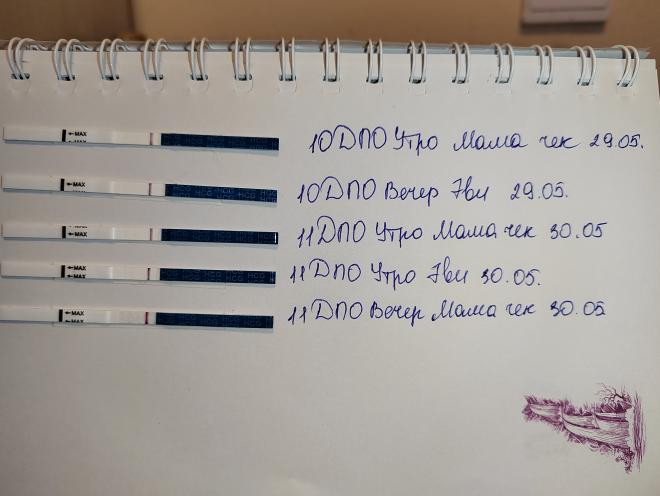 ←MAX 10ДПО Утро Мама чек 29.05.
←MAX HCG HCG HCG 10ДПО Вечер Эви 29.05.
←MAX 11ДПО Утро Мама чек 30.05
←MAX HCG HCG HCG 11ДПО Утро Эви 30.05.
←MAX 11ДПО Вечер Мама чек 30.05